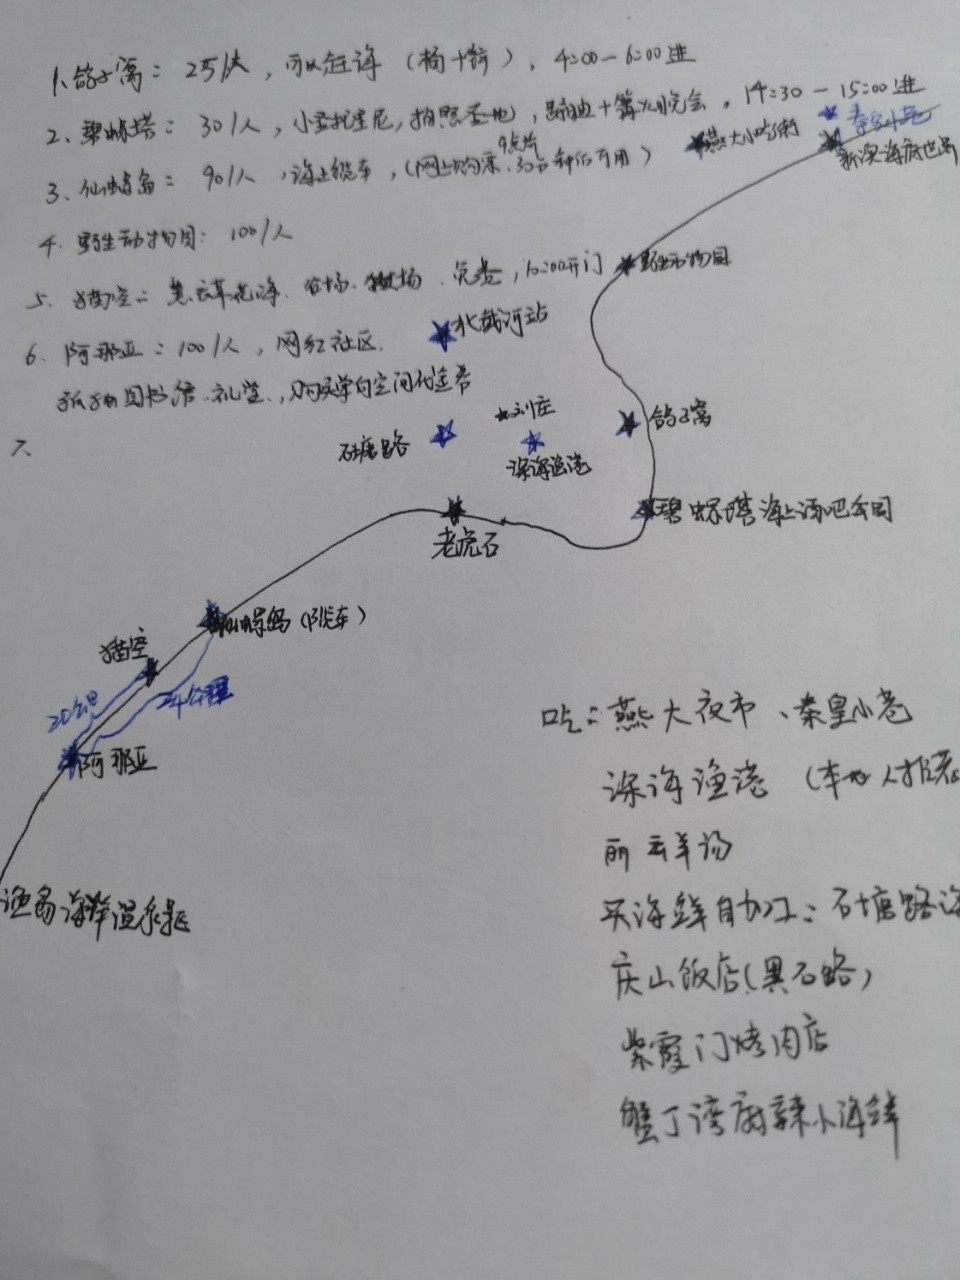 1、鸽子窝：25/人，可以赶海（桶+铲），4:00-6:00进
2、碧螺塔：30/人，小圣托里尼，拍照圣地，蹦迪+篝火晚会。14:30-15:00进
3、仙螺岛：90/人，海上缆车，（网上购票，30分钟后可用）
4、野生动物园：100/人
5、猫空：薰衣草花海、农场、牧场、免费，10:00开门
6、阿那亚：100/人，网红社区.
孤独图书馆、礼堂、
7、
秦皇小巷
燕大小吃街
新澳海底世界
野生动物园
北戴河站
刘庄
鸽子窝
石塘路
深海渔港
碧螺塔海上酒吧公园
老虎石
仙螺岛（陀车）
猫空
20公里
24公里
阿那亚
渔岛海洋温泉景区
吃：燕大夜市、秦皇小巷
深海渔港（本地人推荐
丽云羊汤
买海鲜自加工：石塘路海
庆山饭店（黑石路）
紫霞门烤肉店
蟹丁湾麻辣小海鲜